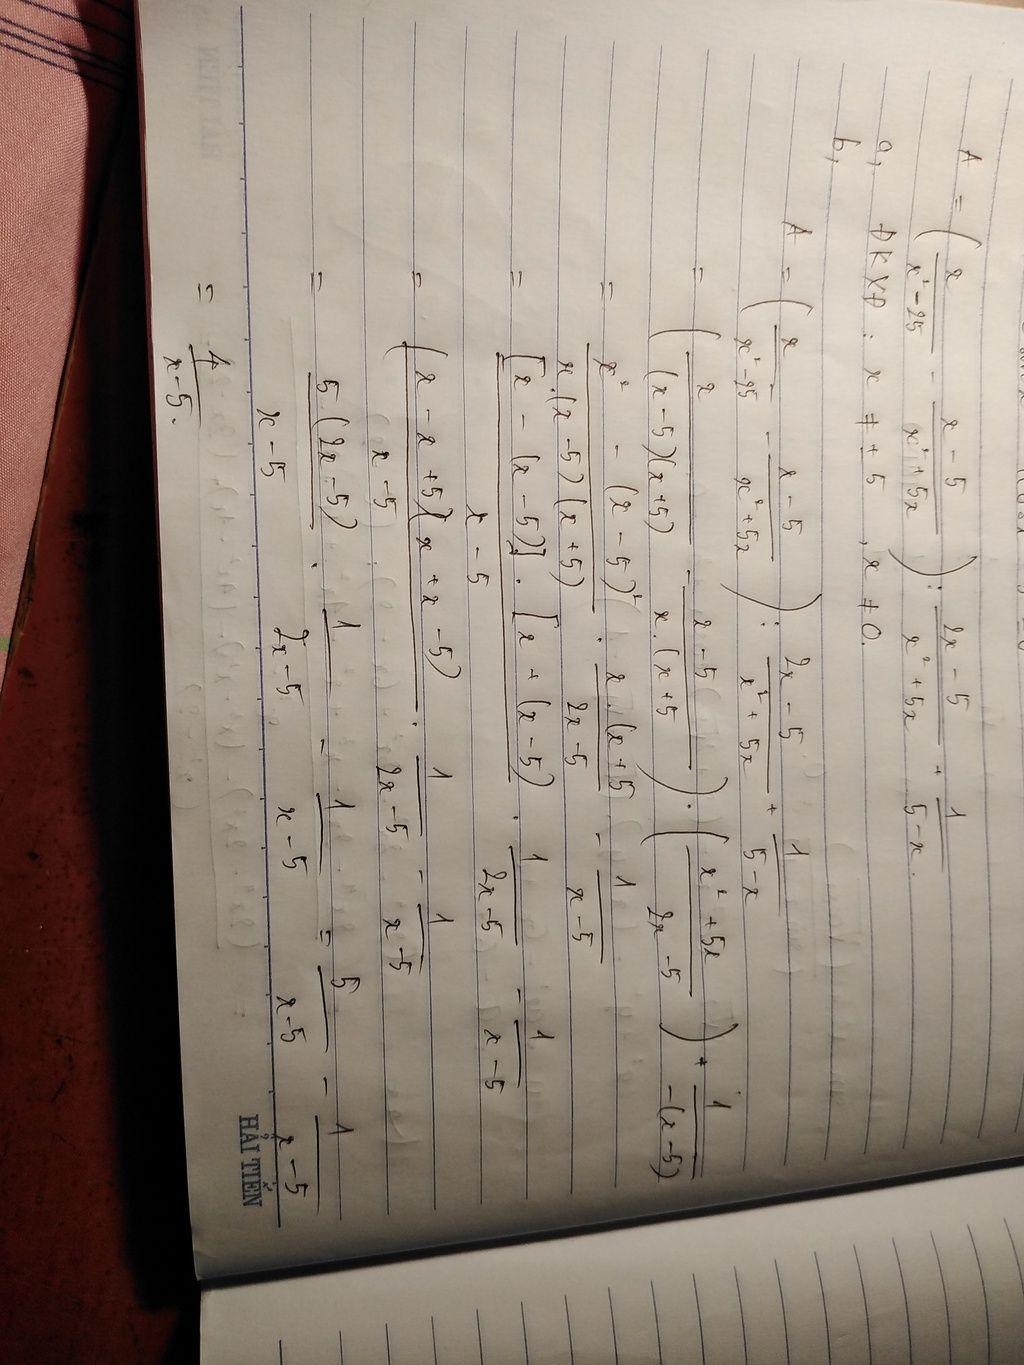 A = ( x/(x² - 25) - (x - 5)/(x² + 5x) ) : (2x - 5)/(x² + 5x) + 1/(5 - x) .
a, ĐKXĐ : x ≠ ± 5 , x ≠ 0.
b,
A = ( x/(x² - 25) - (x - 5)/(x² + 5x) ) : (2x - 5)/(x² + 5x) + 1/(5 - x)
= ( x/((x - 5)(x + 5)) - (x - 5)/(x . (x + 5) ) . ( (x² + 5x)/(2x - 5) ) + 1/(-(x - 5))
= (x² - (x - 5)²)/(x . (x - 5) (x + 5)) . (x . (x + 5)/(2x - 5) - 1/(x - 5)
= ([x - (x - 5)] . [x + (x - 5))/(x - 5) . 1/(2x - 5) - 1/(x - 5)
= ((x - x + 5)(x + x - 5))/(x - 5) . 1/(2x - 5) - 1/(x - 5)
= (5 (2x - 5))/(x - 5) . 1/(2x - 5) - 1/(x - 5) = 5/(x - 5) - 1/(x - 5)
= 4/(x - 5) .
HẢI TIẾN